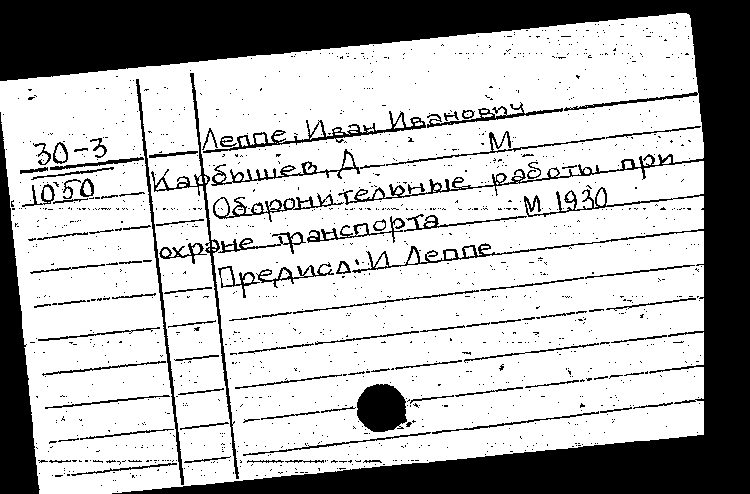 Леппе, Иван Иванович
30-3
1050
Карбышев, Д. М
Оборонительные работы при
охране транспорта М 1930
Предисл: И Леппе